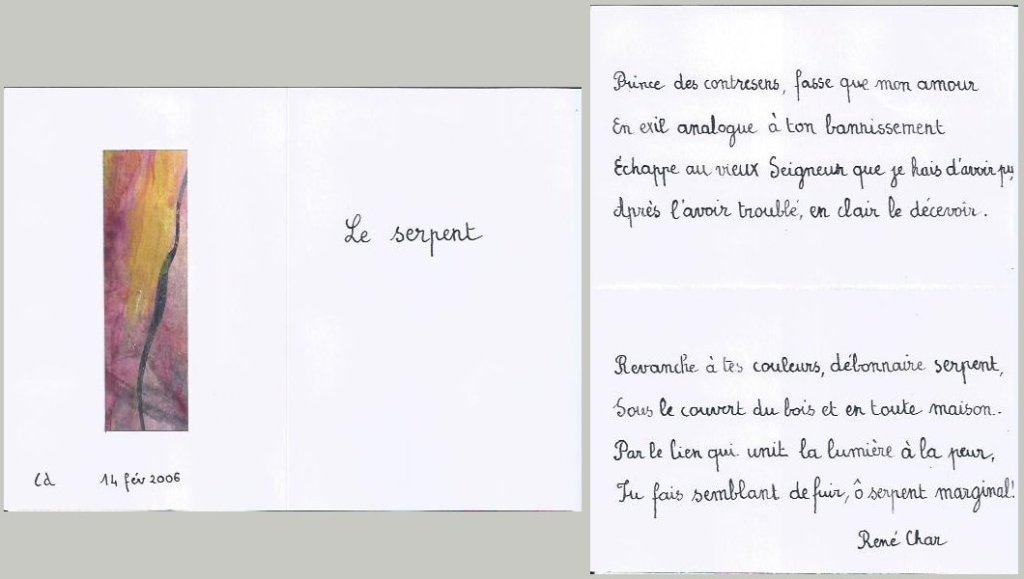 Le serpent
Cd 14 fév 2006
Prince des contresens, fasse que mon amour
En exil analogue à ton bannissement
Échappe au vieux Seigneur que je hais d'avoir pu
Après l'avoir troublé, en clair le décevoir.
Revanche à tes couleurs, débonnaire serpent,
Sous le couvert du bois et en toute maison.
Par le lien qui unit la lumière à la peur,
Tu fais semblant de fuir, ô serpent marginal!
René Char